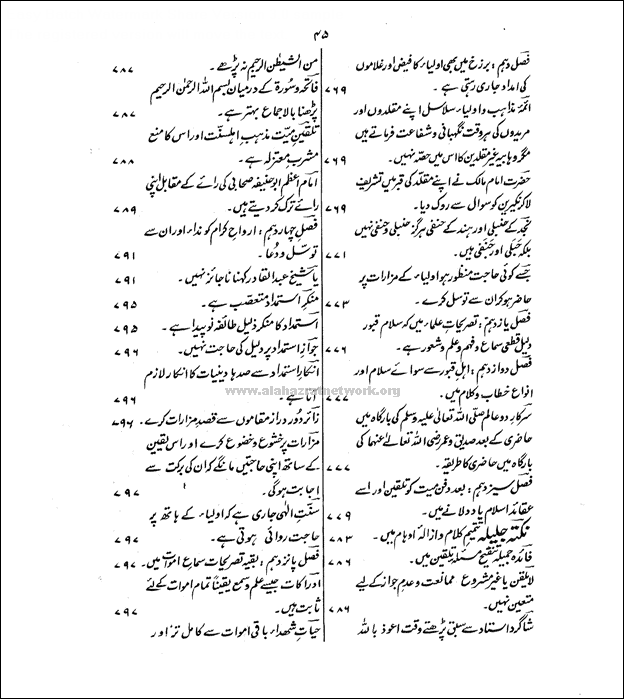 ۴۵
فصل دہم : برزخ میں بھی اولیاء کا فیض اور غلاموں
کی امداد جاری رہتی ہے ۔ ۷۶۹
ائمۂ مذاہب و اولیاء سلاسل اپنے مقلدوں اور
مریدوں کی ہر وقت نگہبانی و شفاعت فرماتے ہیں
مگر وہابیہ غیر مقلدین کا اس میں حصّہ نہیں ۔ ۷۶۹
حضرت امام مالک نے اپنے مقلّد کی قبر میں تشریف
لاکر نکیرین کو سوال سے روک دیا ۔ ۷۶۹
نجد کے حنبلی اور ہند کے حنفی ہرگز حنبلی و حنفی نہیں
بلکہ اور ہیں ۔ ۷۷۱
جسے کوئی حاجت منظور ہو اولیاء کے مزارات پر
حاضر ہوکر ان سے توسل کرے ۔ ۷۷۳
فصل یازدہم : تصریحاتِ علماء میں کہ سلام قبور
دلیلِ قطعی سماع و فہم و علم و شعور ہے ۔ ۷۷۶
فصل دوازدہم : اہلِ قبور سے سوائے سلام اور
انواع خطاب و کلام میں ۔ ۷۷۷
سرکارِ دوعالم صلی اللہ تعالیٰ علیہ وسلم کی بارگاہ میں
حاضری کے بعد صدیق و عمر رضی اللہ تعالےٰ عنہما کی
بارگاہ میں حاضری کا طریقہ ۔ ۷۷۷
فصل سیزدہم : بعد دفن میت کو تلقین اور اسے
عقائدِ اسلام یاد دلانے میں ۔ ۷۷۹
نکتہ جلیلہ تتمیمِ کلام و ازالۂ اوہام میں ۔ ۷۸۳
فائدہ جمیلہ تنقیح مسئلۂ تلقین میں ۔ ۷۸۶
لا یلقن یا غیر مشروع ممانعت و عدمِ جواز کے لیے
متعین نہیں ۔ ۷۸۶
شاگرد استاد سے سبق پڑھتے وقت اعوذ باللہ
من الشیطٰن الرجیم نہ پڑھے ۔ ۷۸۷
فاتحہ و سُورۃ کے درمیان بسم اللہ الرحمٰن الرحیم
پڑھنا بالاجماع بہتر ہے ۔ ۷۸۷
تلقینِ میّت مذہبِ اہلسنّت اور اس کا منع
مشربِ معتزلہ ہے ۔ ۷۸۸
امام اعظم ابو حنیفہ صحابی کی رائے کے مقابل اپنی
رائے ترک کر دیتے ہیں ۔ ۷۸۹
فصل چہاردہم : ارواحِ کرام کو نداء اور ان سے
توسّل و دُعا ۔ ۷۹۱
یا شیخ عبدالقادر کہنا ناجائز نہیں ۔ ۷۹۱
منکرِ استمداد متعصّب ہے ۔ ۷۹۵
استمداد کا منکر ذلیل طائفہ نوپیدا ہے ۔ ۷۹۵
جوازِ استمداد پر دلیل کی حاجت نہیں ۔ ۷۹۶
انکارِ استمداد سے صدہا دینیات کا انکار لازم
آتا ہے ۔ ۷۹۶
زائر دُور دراز مقاموں سے قصدِ مزارات کرے ۔ ۷۹۶
مزارات پر خشوع و خضوع کرے اور اس یقین
کے ساتھ اپنی حاجتیں مانگے کہ ان کی برکت سے
اجابت ہوگی ۔ ۷۹۷
سنّتِ الٰہی جاری ہے کہ اولیاء کے ہاتھ پر
حاجت روائی ہوتی ہے ۔ ۷۹۷
فصل پانزدہم : بقیہ تصریحاتِ سماعِ اموات میں ۔ ۷۹۷
ادراکات جیسے علم و سمع یقیناً تمام اموات کے لئے
ثابت ہیں ۔ ۷۹۷
حیاتِ شہداء باقی اموات سے کامل تر اور
www.alahazratnetwork.org